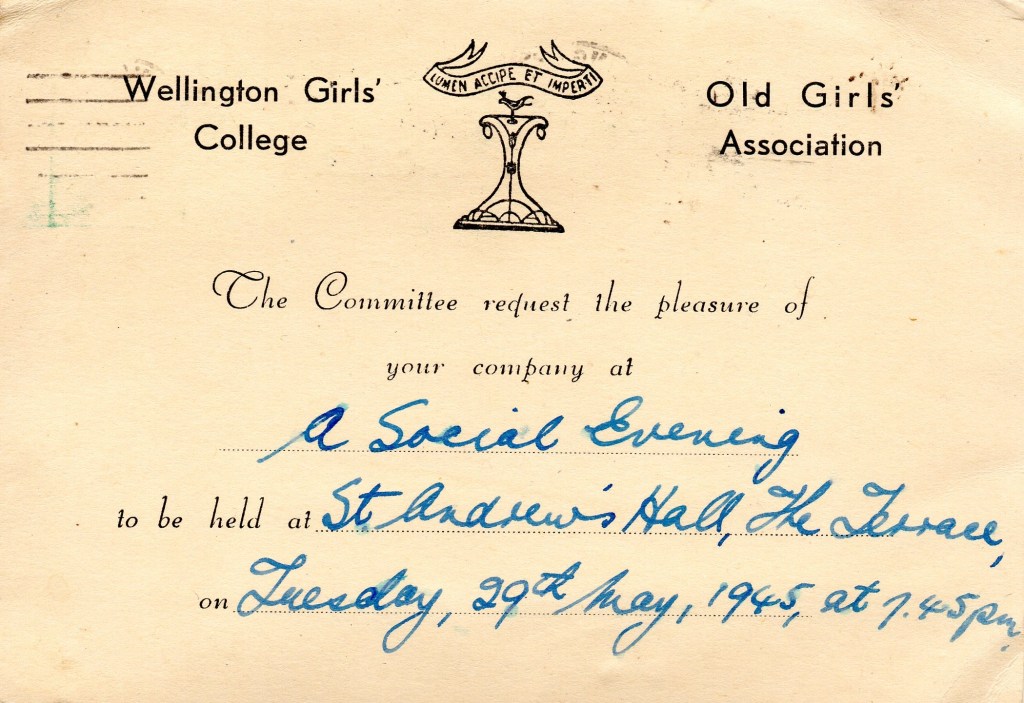 LUMEN ACCIPE ET IMPERTI
Wellington Girls'
College
Old Girls'
Association
The Committee request the pleasure of
your company at
A Social Evening
to be held at St. Andrew's Hall, The Terrace,
on Tuesday, 29th May, 1945, at 7.45pm.